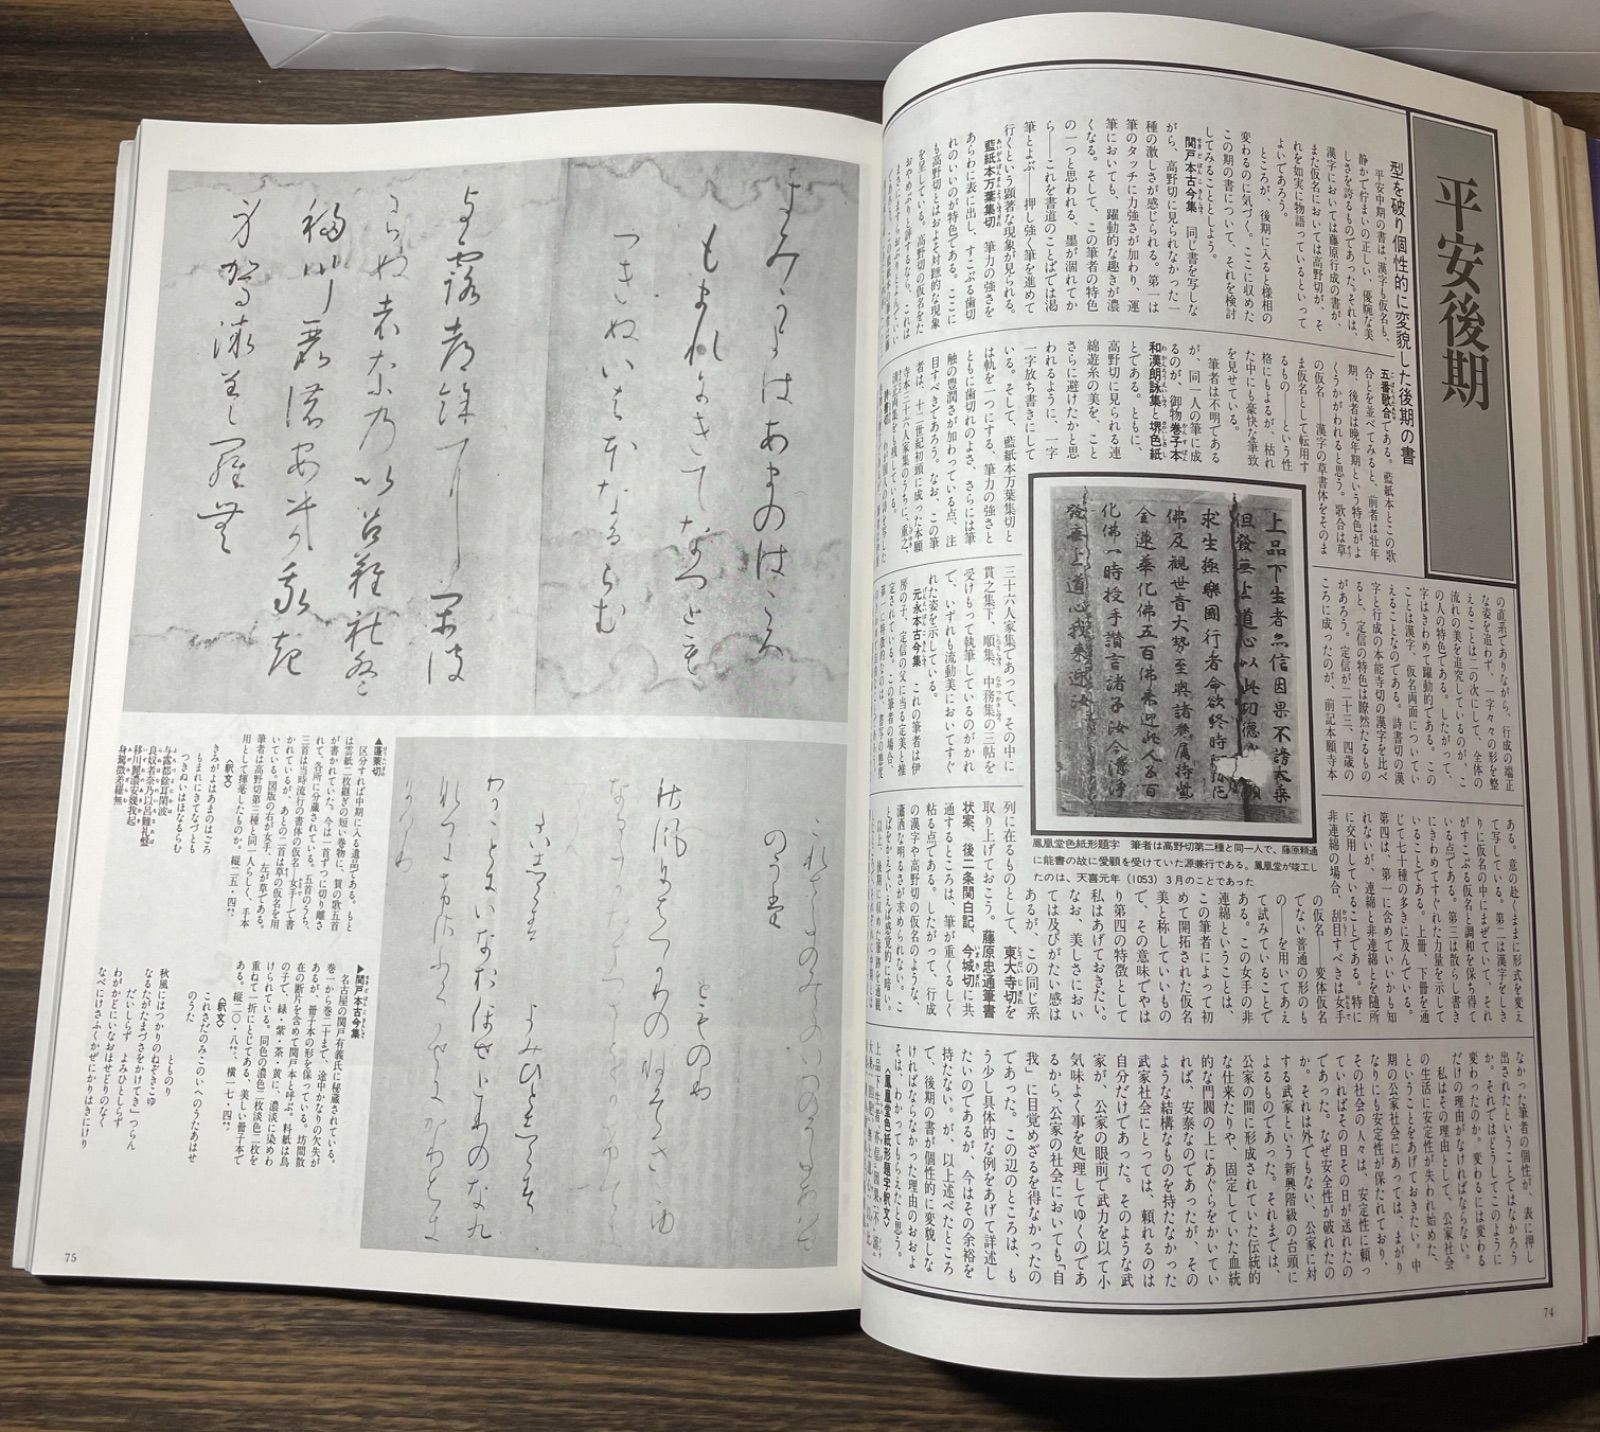 平安後期
型を破り個性的に変貌した後期の書
平安中期の書は、漢字も仮名も、
静かで佇まいの正しい、優婉な美
しさを誇るものであった。それは、
漢字においては藤原行成の書が、
また仮名においては高野切が、そ
れを如実に物語っているといって
よいであろう。
ところが、後期に入ると様相の
変わるのに気づく。ここに収めた
この期の書について、それを検討
してみることとしよう。
関戸本古今集 同じ書を写しな
がら、高野切に見られなかった一
種の激しさが感じられる。第一は
筆のタッチに力強さが加わり、運
筆においても、躍動的な趣きが濃
くなる。そして、この筆者の特色
の一つと思われる、墨が涸れてか
ら――これを書道のことばでは渇
筆とよぶ――押し強く筆を進めて
行くという顕著な現象が見られる。
藍紙本万葉集切 筆力の強さを
あらわに表に出し、すこぶる歯切
れのいいのが特色である。ここに
も高野切とはおよそ対蹠的な現象
を呈している。高野切の仮名をた
五番歌合である。藍紙本とこの歌
合とを並べてみると、前者は壮年
期、後者は晩年期という特色がよ
くうかがわれると思う。歌合は草
の仮名――漢字の草書体をそのま
ま仮名として転用す
るもの――という性
格にもよるが、枯れ
た中にも豪快な筆致
を見せている。
筆者は不明である
が、同一人の筆に成
るのが、御物巻子本
和漢朗詠集と堺色紙
とである。ともに、
高野切に見られる連
綿遊糸の美を、こと
さらに避けたかと思
われるように、一字
一字放ち書きにして
いる。そして、藍紙本万葉集切と
は軌を一つにする、筆力の強さと
ともに歯切れのよさ、さらには筆
触の豊潤さが加わっている点、注
目すべきであろう。なお、この筆
者は、十二世紀初頭に成った本願
寺本三十六人家集のうちに、重之、
上品下生者亦信因果不謗大乗
但發無上道心以此功德
求生極樂國行者命欲終時
佛及觀世音大勢至與諸眷属持
金蓮華化佛五百佛来迎此人五百
化佛一時授手讃言諸子汝今清浄
發無上道心我来迎汝
鳳凰堂色紙形題字 筆者は高野切第二種と同一人で、藤原頼通
に能書の故に愛顧を受けていた源兼行である。鳳凰堂が竣工し
たのは、天喜元年(1053)3月のことであった
の直系でありながら、行成の端正
な姿を追わず、一字々々の形を整
えることは二の次にして、全体の
流れの美を追究しているのが、こ
の人の特色である。したがって、
字はきわめて躍動的である。この
ことは漢字、仮名両面についてい
えることなのである。詩書切の漢
字と行成の本能寺切の漢字を比べ
ると、定信の特色は瞭然たるもの
があろう。定信が二十三、四歳の
ころに成ったのが、前記本願寺本
三十六人家集であって、その中に
貫之集下、順集、中務集の三帖を
受けもって執筆しているのがかれ
で、いずれも流動美においてすぐ
れた姿を示している。
元永本古今集 これの筆者は伊
房の子、定信の父に当る定実と推
定されている。この筆者の場合、
ある。意の赴くままに形式を変え
て写している。第二は漢字をしき
りに仮名の中にまぜていて、それ
がすこぶる仮名と調和を保ち得て
いる点である。第三は散らし書き
にきわめてすぐれた力量を示して
いることである。上冊、下冊を通
じて七十種の多きに及んでいる。
第四は、第一に含めていいかも知
れないが、連綿と非連綿とを随所
に交用していることである。特に
非連綿の場合、刮目すべきは女手
の仮名――変体仮名
でない普通の形のも
の――を用いてあえ
て試みていることで
ある。この女手の非
連綿ということは、
この筆者によって初
めて開拓された仮名
美と称していいもの
で、その意味でやは
り第四の特徴として
私はあげておきたい。
なお、美しさにおい
ては及びがたい感は
あるが、この同じ系
列に在るものとして、東大寺切を
取り上げておこう。藤原忠通筆書
状案、後二条関白記、今城切に共
通するところは、筆が重くるしく
粘る点である。したがって、行成
の漢字や高野切の仮名のような、
瀟洒な明るさが求められない。こ
とばをかえていえば感覚的に暗い。
なかった筆者の個性が、表に押し
出されたということではなかろう
か。それではどうしてこのように
変わったのか。変わるには変わる
だけの理由がなければならない。
私はその理由として、公家社会
の生活に安定性が失われ始めた、
ということをあげておきたい。中
期の公家社会にあっては、まがり
なりにも安定性が保たれており、
その社会の人々は、安定性に頼っ
ていればその日その日が送れたの
であった。なぜ安全性が破れたの
か。それは外でもない、公家に対
する武家という新興階級の台頭に
よるものであった。それまでは、
公家の間に形成されていた伝統的
な仕来たりや、固定していた血統
的な門閥の上にあぐらをかいてい
れば、安泰なのであったが、その
ような結構なものを持たなかった
武家社会にとっては、頼れるのは
自分だけであった。そのような武
家が、公家の眼前で武力を以て小
気味よく事を処理してゆくのであ
るから、公家の社会においても「自
我」に目覚めざるを得なかったの
であった。この辺のところは、も
う少し具体的な例をあげて詳述し
たいのであるが、今はその余裕を
持たない。が、以上述べたところ
で、後期の書が個性的に変貌しな
ければならなかった理由のおおよ
そは、わかってもらえたと思う。
〈鳳凰堂色紙形題字釈文〉
74
▲蓬萊切
区分すれば中期に入る遺品である。もと
は雲紙二枚継ぎの短い巻物に、賀の歌五首
が書かれていた。今は一首ずつに切り離さ
れて、各所に分蔵されている。五首のうち、
三首は当時流行の書体の仮名――女手――で書
かれているが、あとの二首は草の仮名を用
いている。図版の右が女手、左が草である。
筆者は高野切第三種と同一人らしく、手本
用として揮毫したものか。縦二五・四㌢。
〈釈文〉
きみがよはあまのはころ
もまれにきてなづとも
つきぬいはほなるらむ
与露都餘耳閑波
良奴者奈乃以呂難礼盤
移川麗濃安幾我起
身駕微差羅無
▶関戸本古今集
名古屋の関戸有義氏に秘蔵されている。
巻一から巻二十まで、途中かなりの欠失が
あるが、冊子本の形を保っている。坊間散
在の断片を含めて関戸本と呼ぶ。料紙は鳥
の子で、緑・紫・茶・黄に、濃淡に染めわ
けられている。同色の濃色二枚淡色二枚を
重ねて一折にとじてある、美しい冊子本で
ある。縦二〇・八㌢、横一七・四㌢。
〈釈文〉
これさだのみこのいへのうたあはせ
のうた
とものり
秋風にはつかりのねぞきこゆ
なるたがたまづさをかけてき」つらん
だいしらず よみひとしらず
わがかどにいなおほせどりのなく
なべにけさふくかぜにかりはきにけり
75